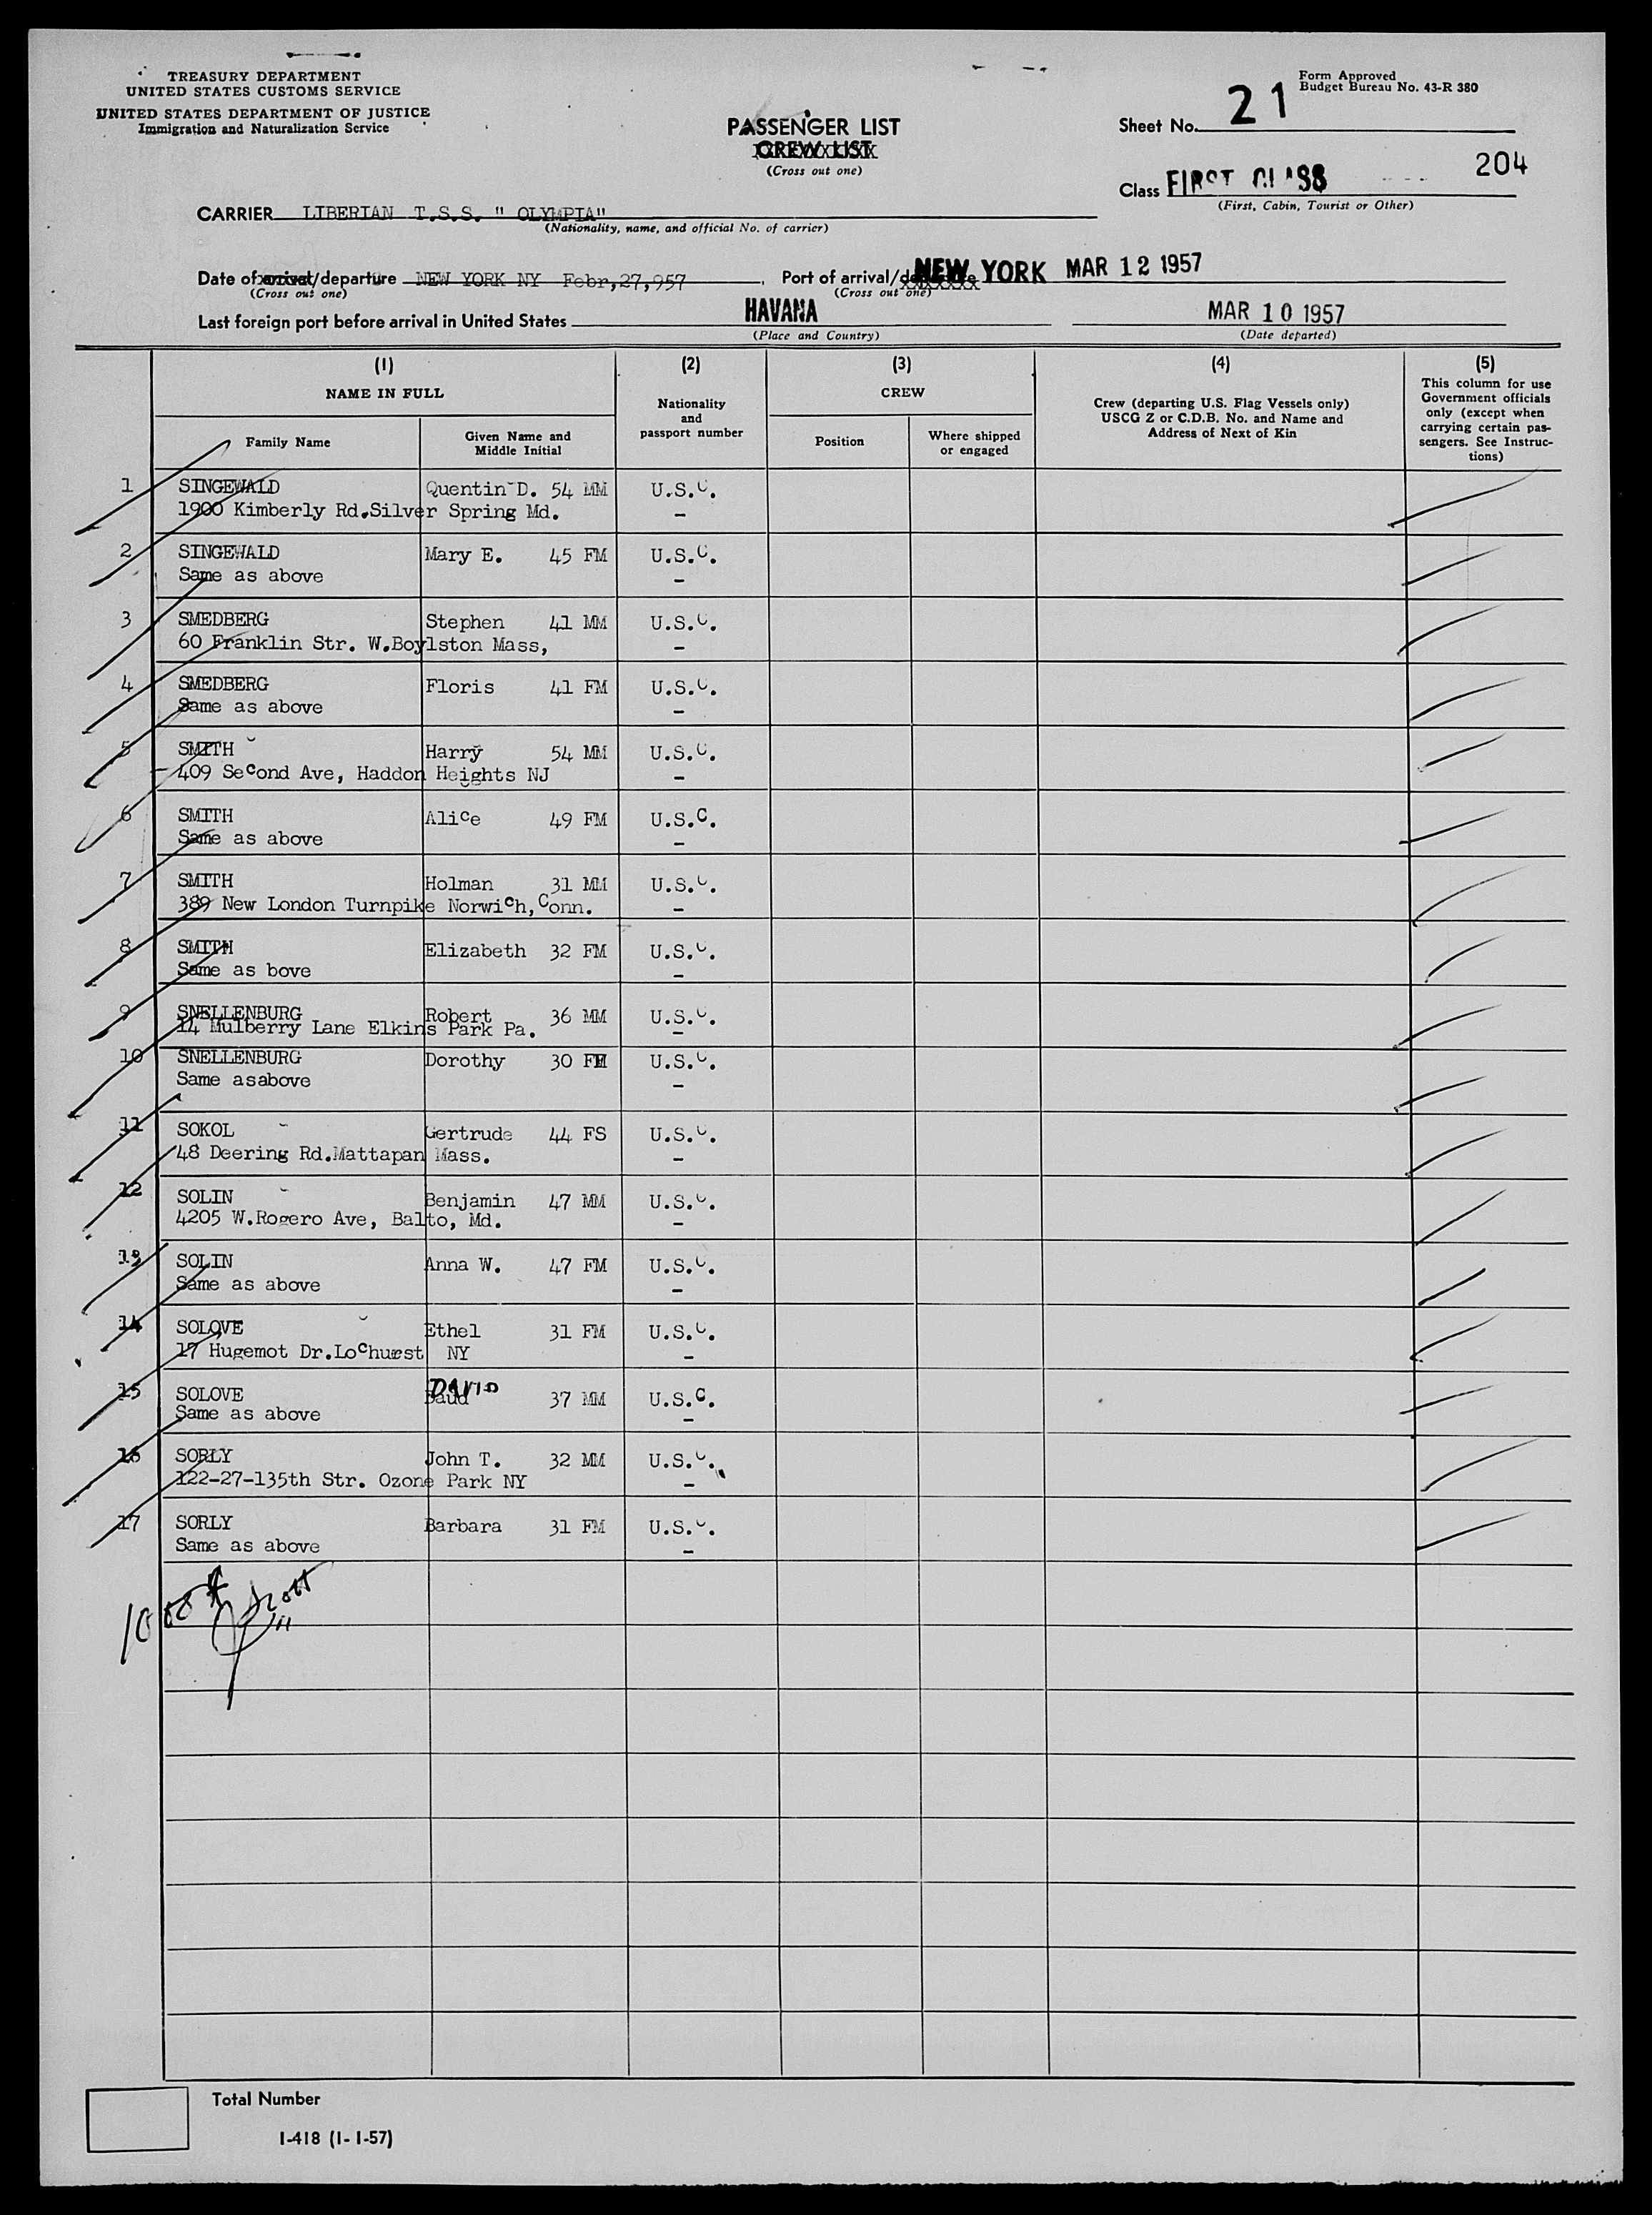 TREASURY DEPARTMENT
UNITED STATES CUSTOMS SERVICE
UNITED STATES DEPARTMENT OF JUSTICE
Immigration and Naturalization Service
Form Approved
Budget Bureau No. 43-R 380
PASSENGER LIST
CREW LIST
(Cross out one)
Sheet No. 21
204
Class FIRST CLASS
(First, Cabin, Tourist or Other)
CARRIER LIBERIAN T.S.S. " OLYMPIA"
(Nationality, name, and official No. of carrier)
Date of arrival/departure NEW YORK NY Febr,27,957. Port of arrival/departure NEW YORK MAR 12 1957
(Cross out one) (Cross out one)
Last foreign port before arrival in United States HAVANA MAR 10 1957
(Place and Country) (Date departed)
(1) (2) (3) (4) (5)
NAME IN FULL
Family Name
Given Name and Middle Initial
Nationality and passport number
CREW
Position
Where shipped or engaged
Crew (departing U.S. Flag Vessels only)
USCG Z or C.D.B. No. and Name and
Address of Next of Kin
This column for use
Government officials
only (except when
carrying certain pas-
sengers. See Instruc-
tions)
1 SINGEWALD Quentin D. 54 MM U.S.C.
1900 Kimberly Rd.Silver Spring Md. -
2 SINGEWALD Mary E. 45 FM U.S.C.
Same as above -
3 SMEDBERG Stephen 41 MM U.S.C.
60 Franklin Str. W.Boylston Mass, -
4 SMEDBERG Floris 41 FM U.S.C.
Same as above -
5 SMITH Harry 54 MM U.S.C.
409 Second Ave, Haddon Heights NJ -
6 SMITH Alice 49 FM U.S.C.
Same as above -
7 SMITH Holman 31 MM U.S.C.
389 New London Turnpike Norwich,Conn. -
8 SMITH Elizabeth 32 FM U.S.C.
Same as bove -
9 SNELLENBURG Robert 36 MM U.S.C.
14 Mulberry Lane Elkins Park Pa. -
10 SNELLENBURG Dorothy 30 FM U.S.C.
Same asabove -
11 SOKOL Gertrude 44 FS U.S.C.
48 Deering Rd.Mattapan Mass. -
12 SOLIN Benjamin 47 MM U.S.C.
4205 W.Rogero Ave, Balto, Md. -
13 SOLIN Anna W. 47 FM U.S.C.
Same as above -
14 SOLOVE Ethel 31 FM U.S.C.
17 Hugemot Dr.Lochurst NY -
15 SOLOVE DAVID 37 MM U.S.C.
Same as above -
16 SORLY John T. 32 MM U.S.C.
122-27-135th Str. Ozone Park NY -
17 SORLY Barbara 31 FM U.S.C.
Same as above -
Total Number
I-418 (1-1-57)